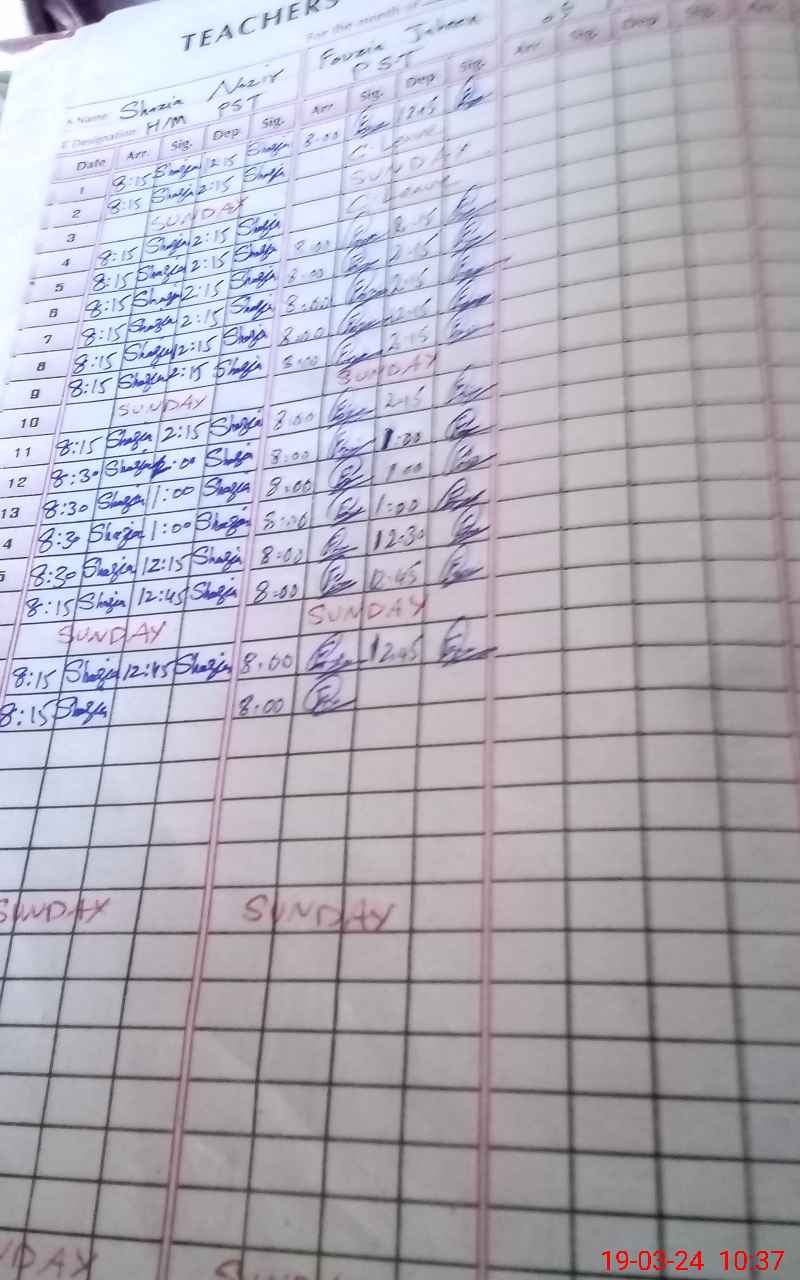 TEACHERS
For the month of
Name Shazia Nazir Fouzia Jabeen
Designation H/M PST PST
Date Arr. Sig. Dep. Sig. Arr. Sig. Dep. Sig. Arr. Sig. Dep. Sig. Arr.
1 8:15 Shazia 12:15 Shazia 8:00 12:15
2 8:15 Shazia 2:15 Shazia C. Leave
3 SUNDAY SUNDAY
4 8:15 Shazia 2:15 Shazia C. Leave
5 8:15 Shazia 2:15 Shazia 8:00 2:15
6 8:15 Shazia 2:15 Shazia 8:00 2:15
7 8:15 Shazia 2:15 Shazia 8:00 2:15
8 8:15 Shazia 2:15 Shazia 8:00 2:15
9 8:15 Shazia 2:15 Shazia 8:00 2:15
10 SUNDAY SUNDAY
11 8:15 Shazia 2:15 Shazia 8:00 2:15
12 8:30 Shazia 1:00 Shazia 8:00 1:00
13 8:30 Shazia 1:00 Shazia 8:00 1:00
4 8:30 Shazia 1:00 Shazia 8:00 1:00
5 8:30 Shazia 12:15 Shazia 8:00 12:30
8:15 Shazia 12:45 Shazia 8:00 12:45
SUNDAY SUNDAY
8:15 Shazia 12:45 Shazia 8:00 12:45
8:15 Shazia 8:00
SUNDAY SUNDAY
DAY SUNDAY
19-03-24 10:37